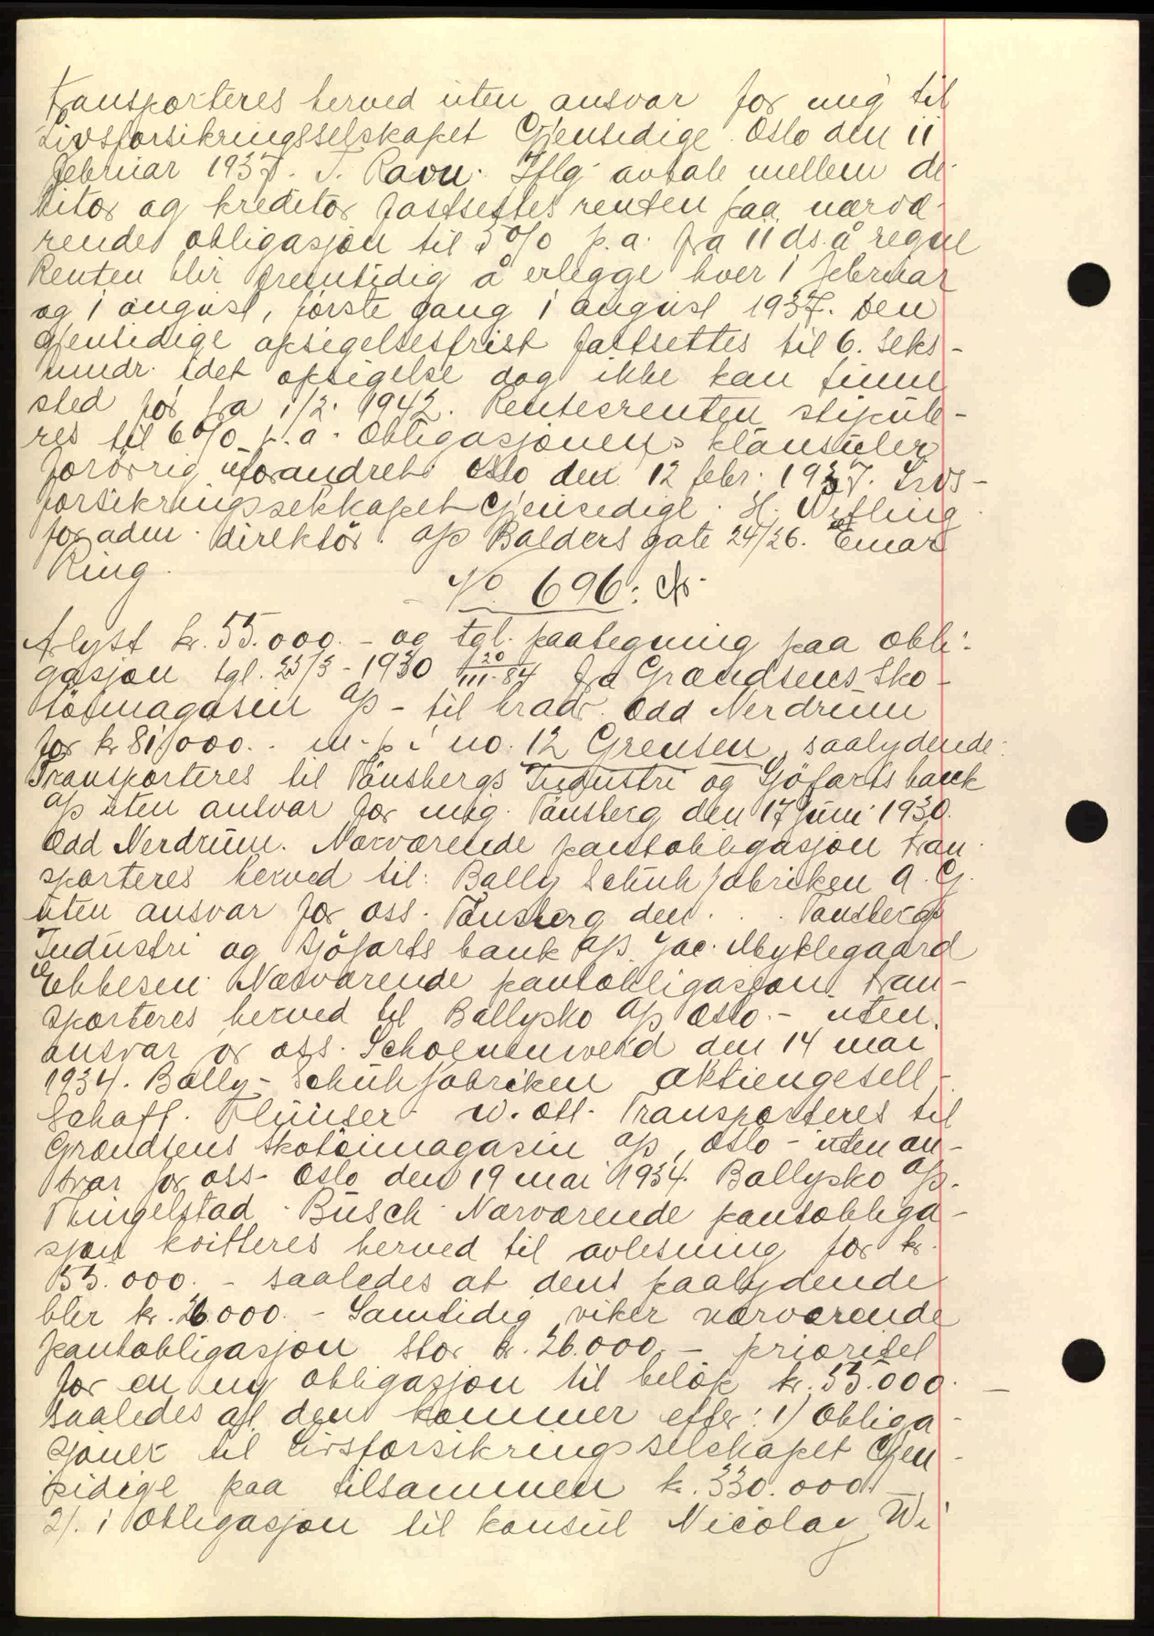 transporteres herved uten ansvar for mig til
Livsforsikringsselskapet Gjensidige Oslo den 11
februar 1937. T. Ravn. Iflg. avtale mellem de-
bitor og kreditor fastsettes renten paa nærvæ-
rendes obligasjon til 5 % p.a. fra 11 ds. å regne
Renten blir fremtidig å erlegge hver 1 februar
og 1 august, første gang 1 august 1937. Den
gjensidige opsigelsesfrist fastsettes til 6. seks-
mndr. idet opsigelse dog ikke kan finne
sted før fra 1/2. 1942. Rentesrenten stipule-
res til 6 % p.a. Obligasjonens klausuler
forøvrig uforandret. Oslo den 12 febr. 1937. Livs-
forsikringsselskapet Gjensidige. H.
for adm. direktør. A/S Balders gate 24/26. Einar
Ring.
No 696:
Avlyst kr. 55.000.- og tgl. paategning paa obli-
gasjon tgl. 25/3-1930 20/III-84 fra Grændsens Sko-
tøimagasin A/S - til hradv. Odd Nerdrum
for kr 81.000.. m. p. i no. 12 Grensen, saalydende:
Transporteres til Tönsbergs Industri og Sjöfartsbank
A/S uten ansvar for mig. Tönsberg den 17 juni 1930.
Odd Nerdrum. Nærværende pantobligasjon tran-
sporteres herved til: Bally Schuhfabriken A. G.
uten ansvar for oss. Tönsberg den . . Tönsbergs
Industri og Sjöfarts bank A/S. Jac. Myklegaard
Ebbesen. Nærværende pantobligasjon tran-
sporteres herved til Ballysko A/S Oslo - uten
ansvar for oss. Schoenenwerd den 14 mai
1934. Bally-Schuhfabriken Aktiengesell-
schaft. W. Ott. Transporteres til
Grændsens Skotöimagasin A/S, Oslo - uten an-
svar for oss. Oslo den 19 mai 1934. Ballysko A/S.
Thingelstad. Busch. Nærværende pantobliga-
sjon kvitteres herved til avlesning for kr.
55.000.- saaledes at dens paalydende
blir kr. 26.000.- Samtidig viker nærværende
pantobligasjon stor kr. 26.000.- prioritet
for en ny obligasjon til beløp kr. 55.000.-
saaledes at den kommer efter: 1) Obliga-
sjoner til Livsforsikringsselskapet Gjen-
sidige paa tilsammen kr. 330.000.-
2/. 1 obligasjon til konsul Nicolay Wi